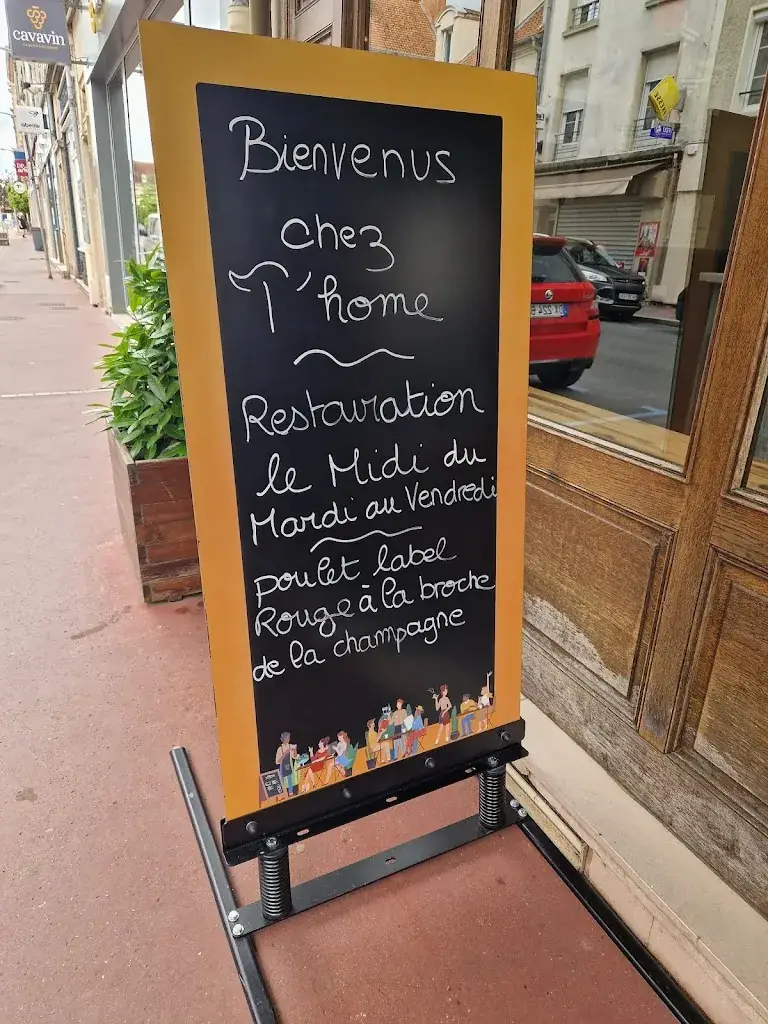 cavavin
Bienvenus
chez
T'home
Restauration
le Midi du
Mardi au Vendredi
poulet label
Rouge à la broche
de la champagne